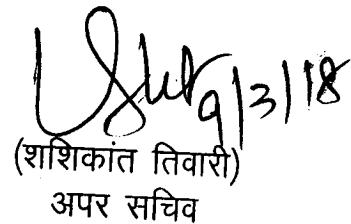 9/3/18
(शशिकांत तिवारी)
अपर सचिव